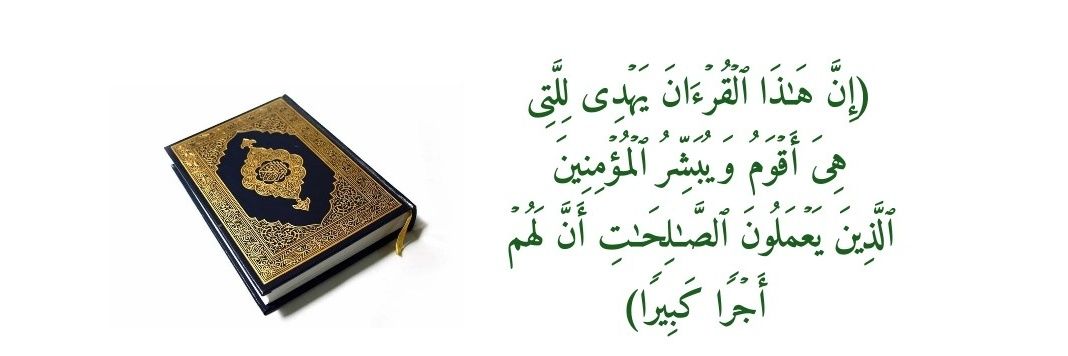 (إِنَّ هَـٰذَا ٱلۡقُرۡءَانَ يَهۡدِى لِلَّتِى
هِىَ أَقۡوَمُ وَيُبَشِّرُ ٱلۡمُؤۡمِنِينَ
ٱلَّذِينَ يَعۡمَلُونَ ٱلصَّـٰلِحَـٰتِ أَنَّ لَهُمۡ
أَجۡرًا كَبِيرًا)